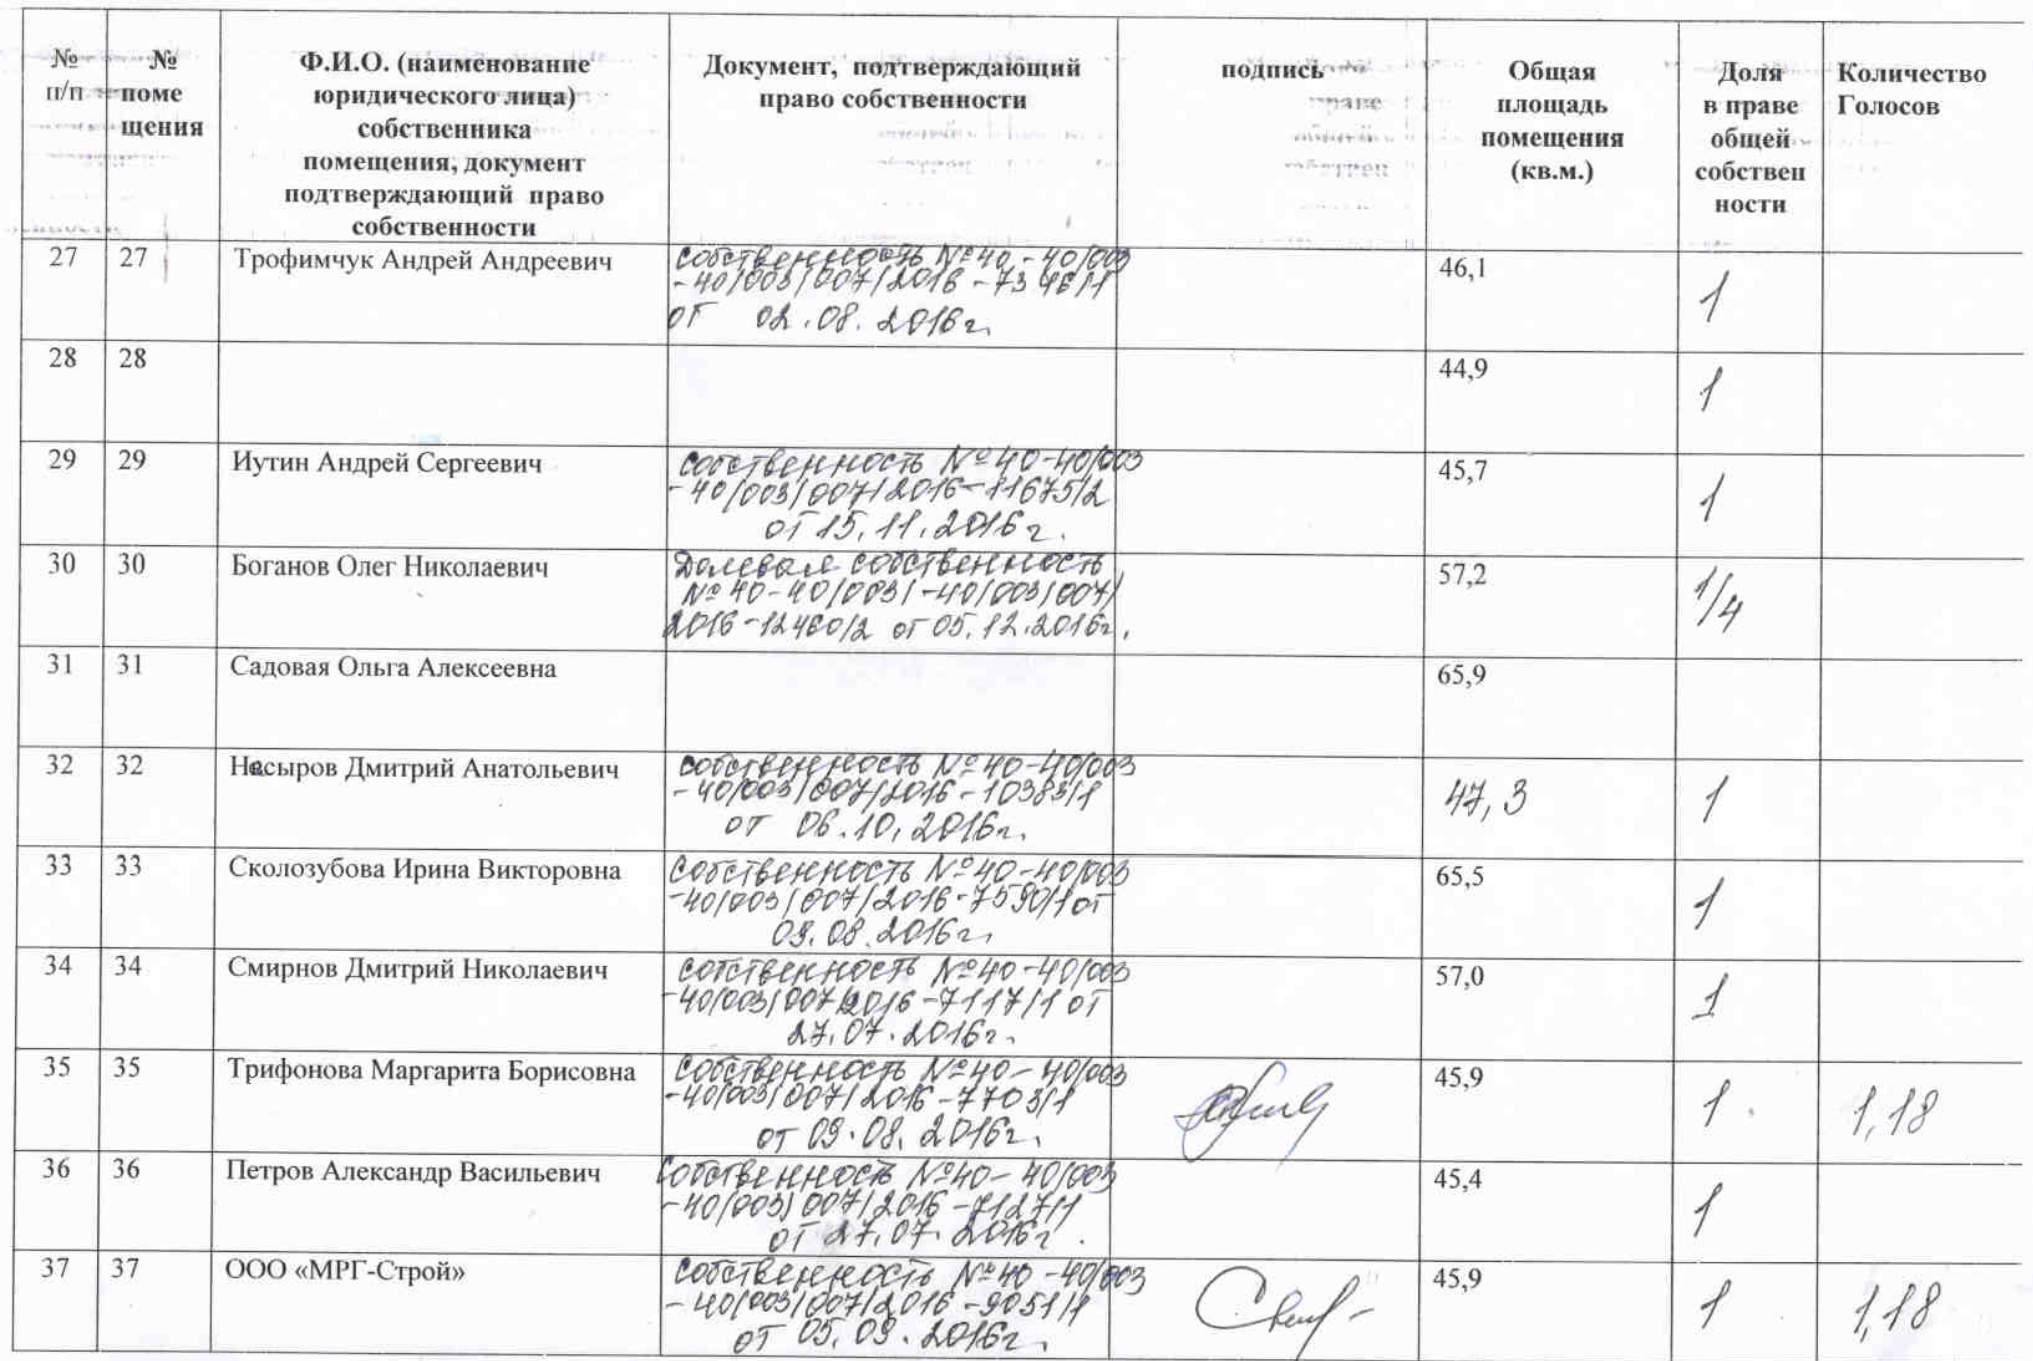 № п/п
№ поме щения
Ф.И.О. (наименование
юридического лица)
собственника
помещения, документ
подтверждающий право
собственности
Документ, подтверждающий
право собственности
подпись
Общая
площадь
помещения
(кв.м.)
Доля
в праве
общей
собствен
ности
Количество
Голосов
27 27 Трофимчук Андрей Андреевич 46,1 1
Собственность №40-40/003
-40/003/007/2016-7346/1
от 02.08.2016г.
28 28 44,9 1
29 29 Иутин Андрей Сергеевич 45,7 1
собственность №40-40/003
-40/003/007/2016-11675/2
от 15.11.2016г.
30 30 Боганов Олег Николаевич 57,2 1/4
Долевая собственность
№40-40/003/-40/003/007/
2016-12460/2 от 05.12.2016г.
31 31 Садовая Ольга Алексеевна 65,9
32 32 Насыров Дмитрий Анатольевич 47,3 1
собственность №40-40/003
-40/003/007/2016-10383/1
от 06.10.2016г.
33 33 Сколозубова Ирина Викторовна 65,5 1
Собственность №40-40/003
-40/003/007/2016-7590/1 от
09.08.2016г.
34 34 Смирнов Дмитрий Николаевич 57,0 1
собственность №40-40/003
-40/003/007/2016-7117/1 от
27.07.2016г.
35 35 Трифонова Маргарита Борисовна 45,9 1 1,18
Собственность №40-40/003
-40/003/007/2016-7703/1
от 09.08.2016г.
36 36 Петров Александр Васильевич 45,4 1
Собственность №40-40/003
-40/003/007/2016-7127/1
от 27.07.2016г.
37 37 ООО «МРГ-Строй» 45,9 1 1,18
Собственность №40-40/003
-40/003/007/2016-9051/1
от 05.09.2016г.